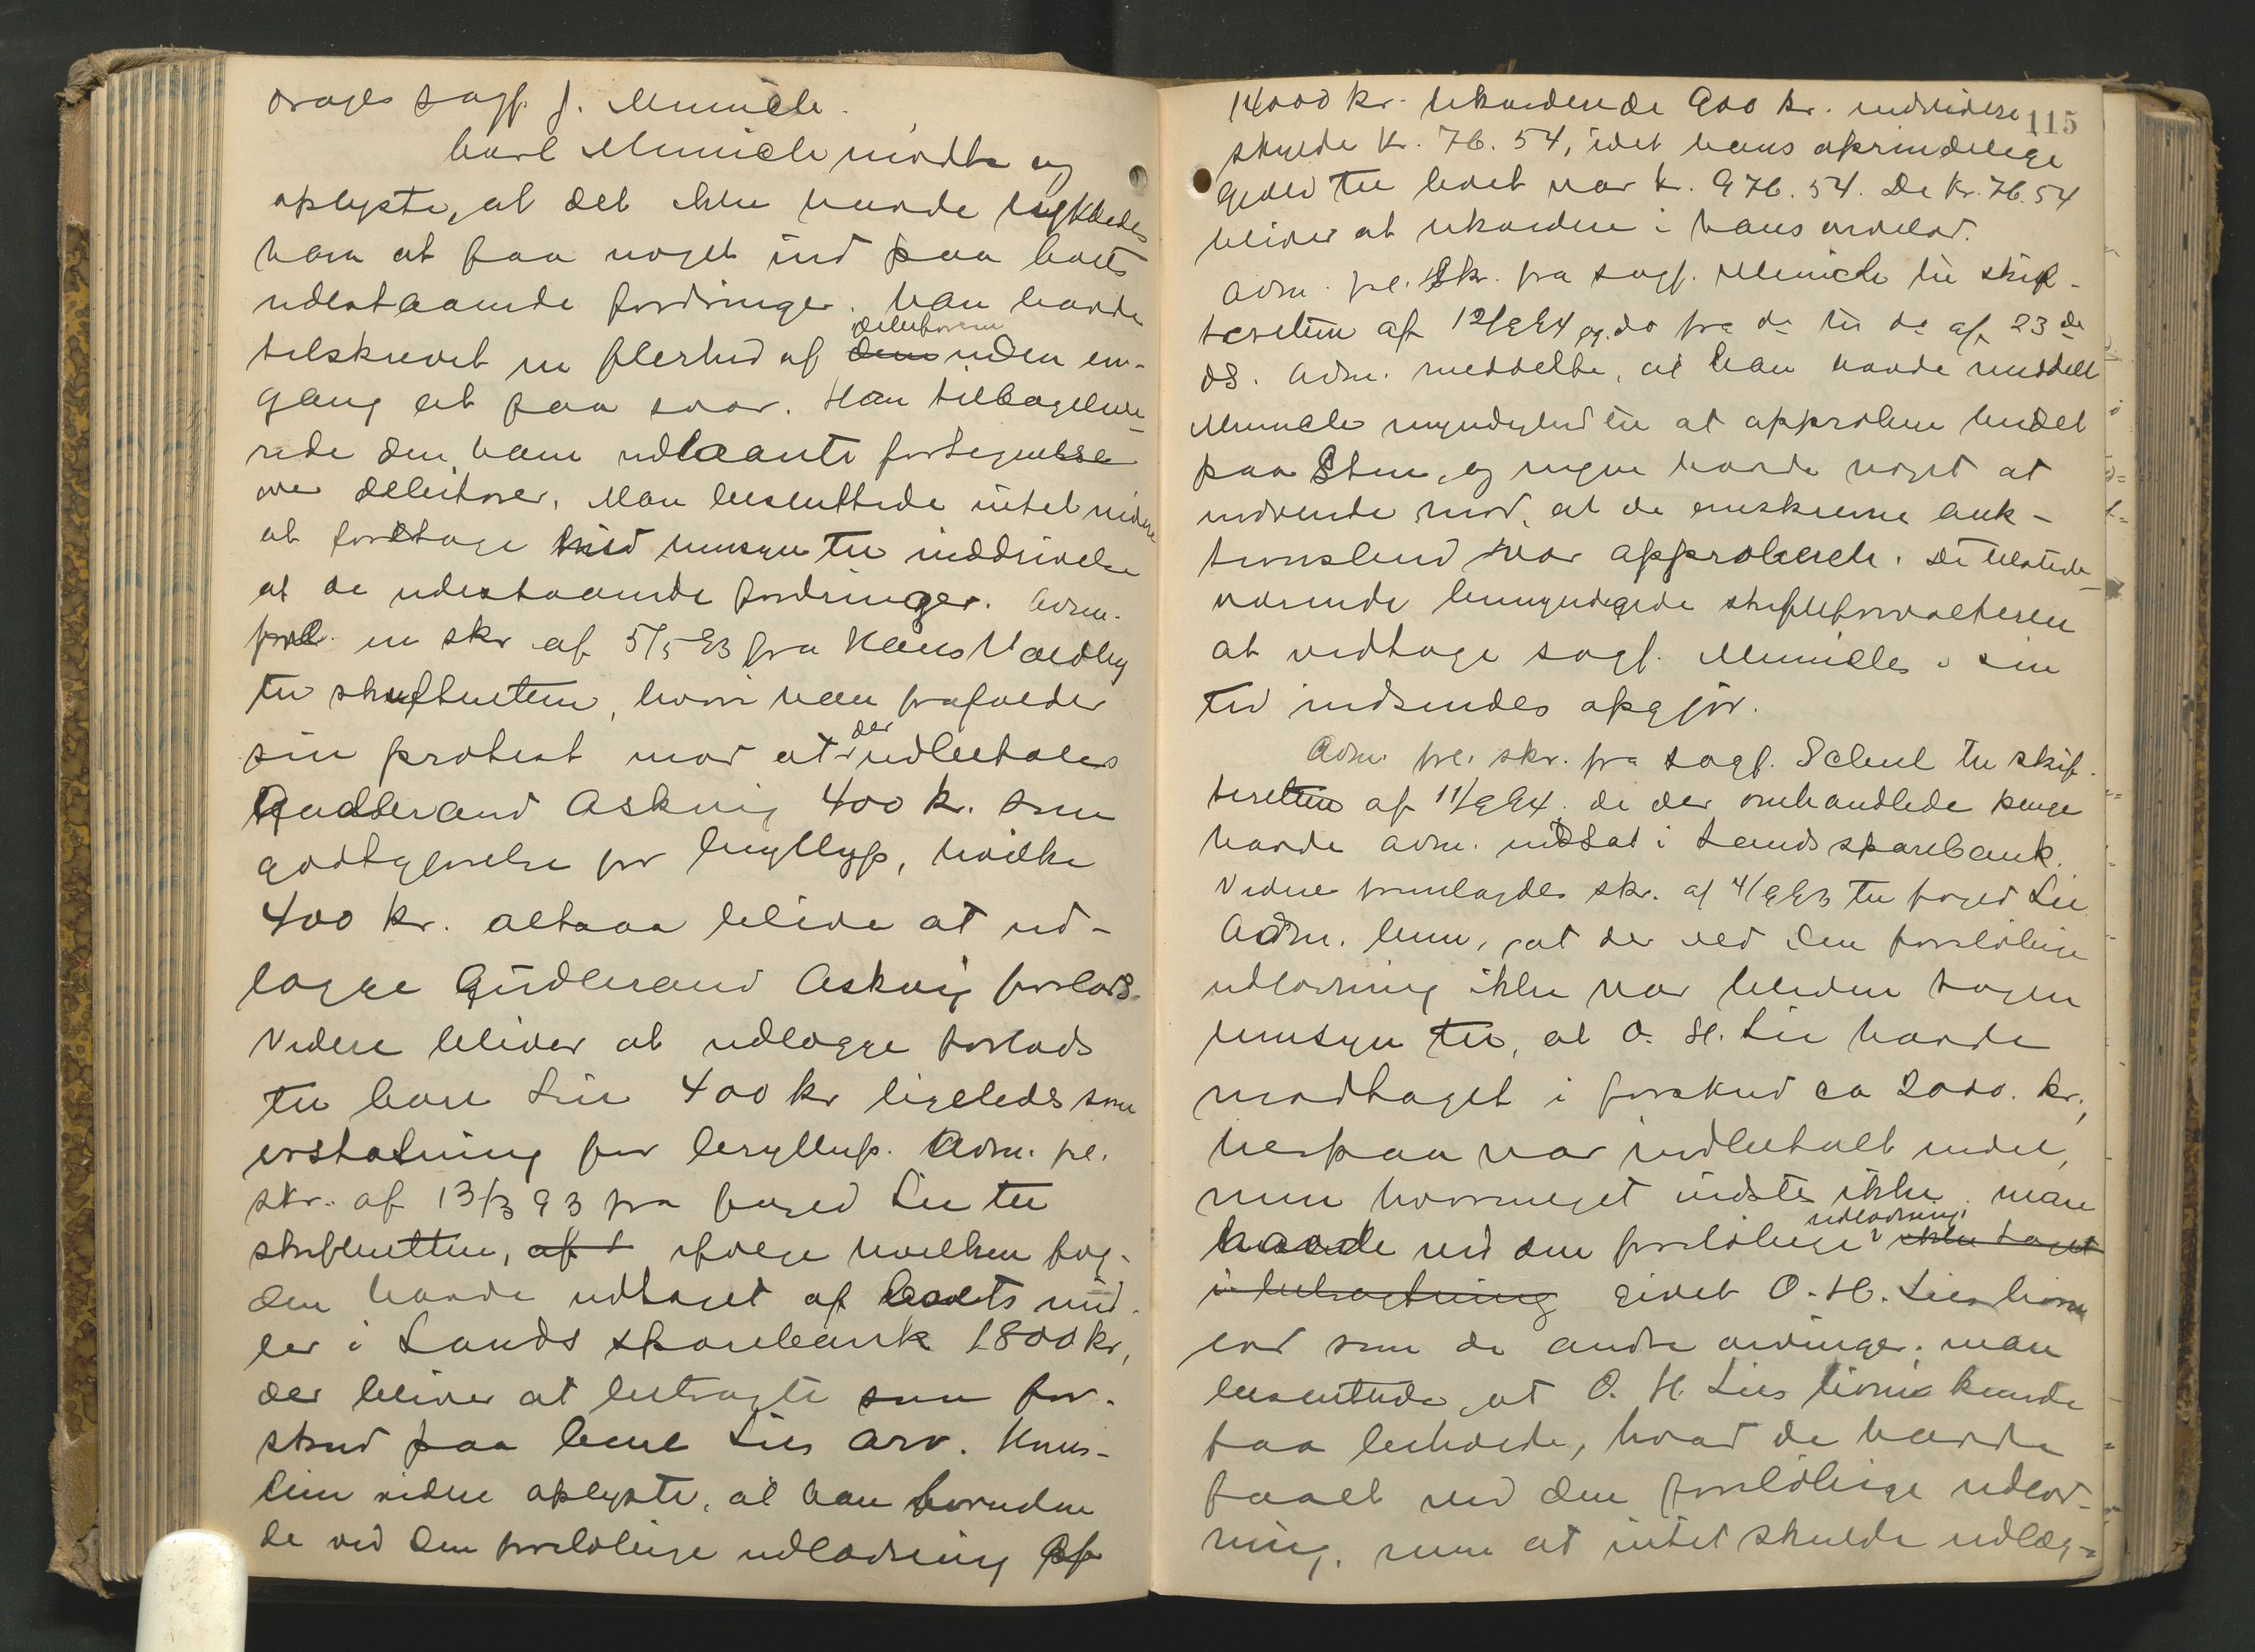 drages sagf. J. Munich.
Carl Munich mødte og
oplyste, at det ikke havde lykkedes
ham at faa noget ind paa boets
udestaaende fordringer. Han havde
tilskrevet en flerhed af dem debitorerne uden en-
gang at faa svar. Han tilbagelever-
rede den ham udlaante fortegnelse
over debitorer. Man besluttede intet videre
at foretage med hensyn til inddrivelse
af de udestaaende fordringer. Adm.
frl. en skr af 5/5 93 fra Hans Vardby
til skifteretten, hvori han frafalder
sin protest mod at der udbetales
Gudbrand Askvig 400 kr. som
godtgjørelse for bryllup, hvilke
400 kr. altsaa bliver at ud-
lægge Gudbrand Askvig forlods.
Videre bliver at udlægge forlods
til Carl Lie 400 kr ligeledes som
erstatning for bryllup. Adm. frl.
skr. af 13/3 93 fra foged Lie til
skifteretten, af ifølge hvilken fog-
den havde udtaget af boets mid-
ler i Lands sparebank 1800 kr,
der bliver at betragte som for-
skud paa Carl Lies arv.
videre oplyste, at han foruden
de ved den foreløbige udlodning
14000 kr. 900 kr. endvidere 115
skylde kr. 76.54, idet hans oprindelige
gjæld til boet var kr. 976.54. De kr. 76.54
bliver at i hans arvelod.
Adm. frl. skr. fra sagf. Munich til skif-
teretten af 12/9 94 og do fra do til do af 23de
ds. Adm. meddelte, at han havde meddelt
Munich myndighed til at approbere budet
paa Sten, og ingen havde noget at
indvende mod, at de omskrevne auk-
tionsbud var approberede. De tilstede-
værende bemyndigede skifteforvalteren
at vedtage sagf. Munichs i sin
tid indsendes opgjør.
Adm. frl. skr. fra sagf. Schul til skif-
teretten af 11/9 94. de der omhandlede penge
havde adm. indsat i Lands sparebank.
Videre fremlagdes skr. af 4/9 93 til foged Lie
Adm. bem., at der ved den foreløbige
udlodning ikke var bleven tagen
hensyn til, at O. H. Lie havde
modtaget i forskud ca 2000. kr.,
herpaa var indbetalt endel,
men hvormeget vidstes ikke. man
havde ved den foreløbige udlodning ikke taget
i betragtning givet O. H. Lies livsarv-
lod som de andre arvinger. man
besluttede, at O. H. Lies kunde
faa beholde, hvad de havde
faaet ved den foreløbige udlod-
ning, men at intet skulde udlæg-